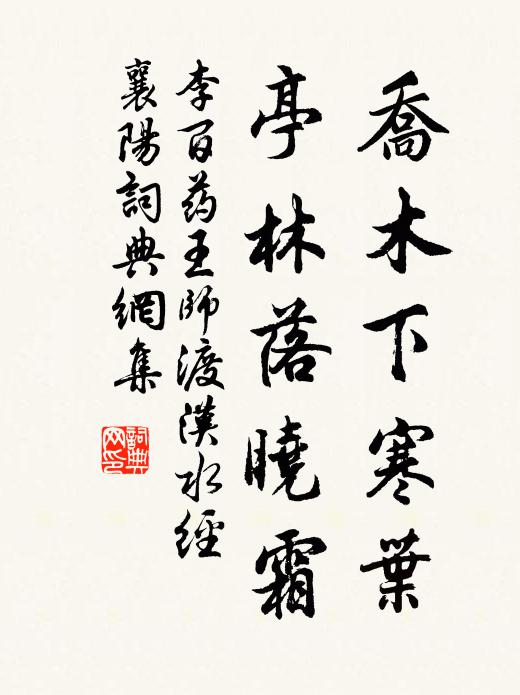 喬木下寒葉
亭林落曉霜
李百药王師渡漢水經
襄陽詞典網集
詞典网印